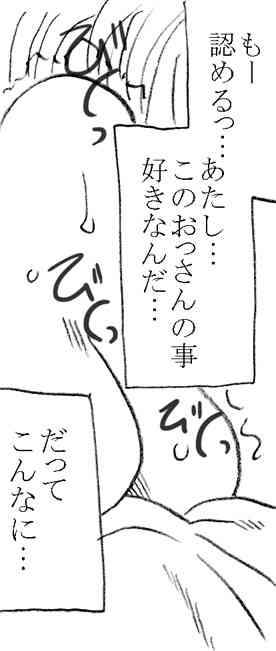 もー
認めるっ…
あたし…
このおっさんの事
好きなんだ…
びくっ
びくっ
びくっ
だって
こんなに…